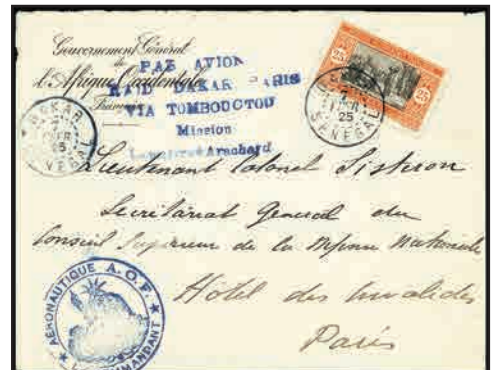 Gouvernement Général
de
l'Afrique Occidentale
Française
PAR AVION
RAID DAKAR PARIS
VIA TOMBOUCTOU
Mission
Arachard
DAKAR
25
SENEGAL
DAKAR
FER
25
SENEGAL
25
Lieutenant Colonel Sisteron
Secrétariat General du
Conseil Supérieur de la Défense Nationale
Hôtel des Invalides
Paris
AÉRONAUTIQUE A.O.F.
COMMANDANT